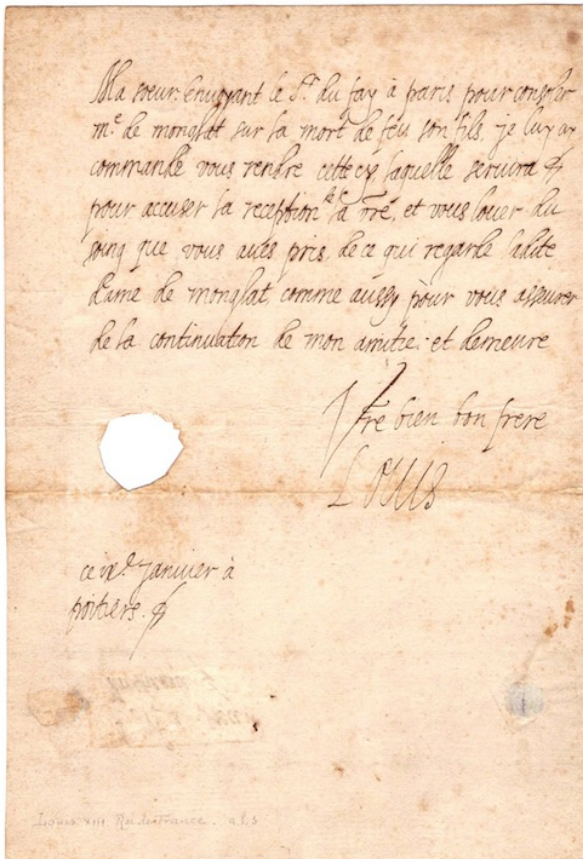 Ma sœur. Envoyant le Sr. du fay à paris pour consoler
me. de monglat sur la mort de feu son fils, je luy ay
commandé vous rendre cette cy laquelle servira
pour accuser la reception de la vre. et vous louer du
soing que vous avés pris de ce qui regarde ladite
dame de monglat comme aussy pour vous asseurer
de la continuation de mon amitie. et demeure
Vre bien bon frere
Louis
ce Janvier à
poitiers.
Louis XIII Roi de France. a.l.s